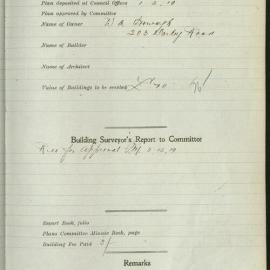 Plan deposited at Council Offices 1. 2. 19
Plan approved by Committee
Name of Owner W A
203 Road
Name of Builder
Name of Architect
Value of Buildings to be erected
Building Surveyor's Report to Committee
for approval
Report Book, folio
Plans Committee Minute Book, page
Building Fee Paid 3/-
Remarks